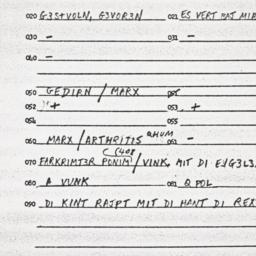 020 G3STVOLN, G3VOR3N 021 ES VERT MAJ MIR
030 - 031 -
040 -
050 GEDIRN / MARX 051
052 + 053 +
054 055
060 MARX / ARTHRITIS 061 -
070 FARKRIMT3R PONIM / VINK. MIT DI EJG3L3.
080 A VUNK 081 Q POL
090 DI KINT RAJPT MIT DI HANT DI REX